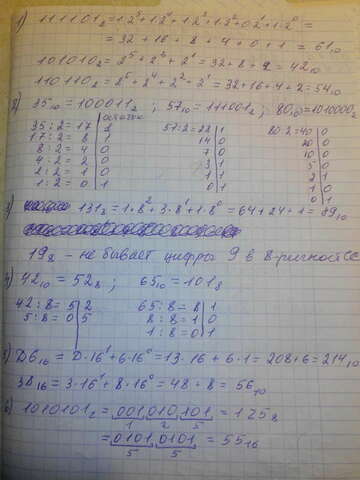 1) 111101₂ = 1·2⁵+1·2⁴+1·2³+1·2²+0·2¹+1·2⁰ =
= 32 + 16 + 8 + 4 + 0 + 1 = 61₁₀
101010₂ = 2⁵+2³+2¹ = 32+8+2 = 42₁₀
110110₂ = 2⁵+2⁴+2²+2¹ = 32+16+4+2 = 54₁₀
2) 35₁₀ = 100011₂ ; 57₁₀ = 111001₂ ; 80₁₀ = 1010000₂
остаток
35:2=17 | 1 57:2=28 | 1 80:2=40 | 0
17:2=8 | 1 14 | 0 20 | 0
8:2=4 | 0 7 | 0 10 | 0
4:2=2 | 0 3 | 1 5 | 0
2:2=1 | 0 1 | 1 2 | 1
1:2=0 | 1 0 | 1 1 | 0
0 | 1
3) 131₈ = 1·8²+3·8¹+1·8⁰ = 64+24+1 = 89₁₀
19₈ - не бывает цифры 9 в 8-ричной СС
4) 42₁₀ = 52₈ ; 65₁₀ = 101₈
42:8=5 | 2 65:8=8 | 1
5:8=0 | 5 8:8=1 | 0
1:8=0 | 1
5) D6₁₆ = D·16¹+6·16⁰ = 13·16+6·1 = 208+6 = 214₁₀
38₁₆ = 3·16¹+8·16⁰ = 48+8 = 56₁₀
6) 1010101₂ = 001,010,101 = 125₈
1 2 5
= 0101,0101 = 55₁₆
5 5